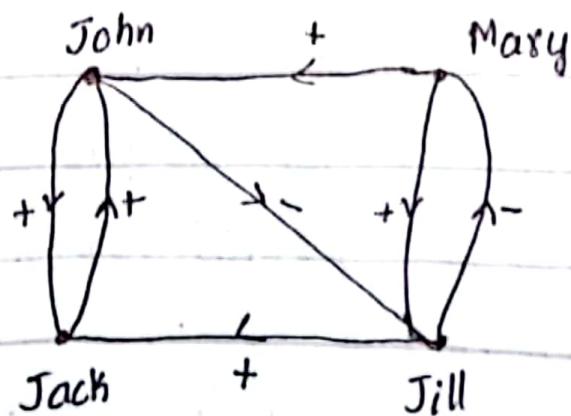 John + Mary
+ + - + -
Jack + Jill